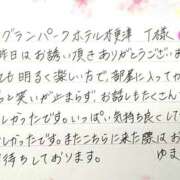 グランパークホテル木更津 T様
昨日はお誘い頂きありがとうござい
ても明るく楽しい方で、部屋に入ってか
っと笑いが止まらず、お話しもたくさん
しかったです。いっぱい気持ち良くして
しかったです。またこちらに来た際はお
待ちしております。
ゆま